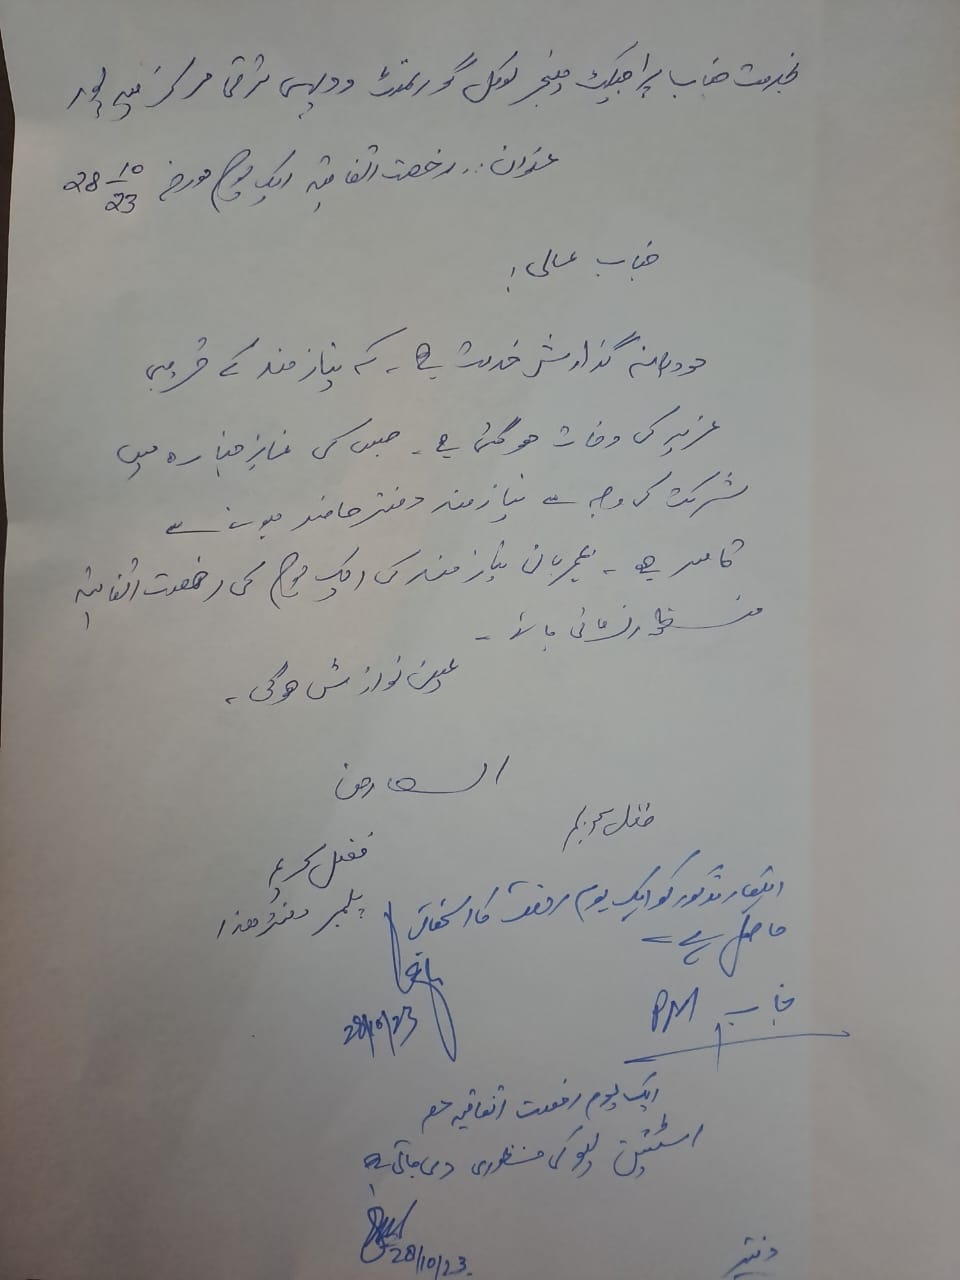 بخدمت جناب پراجیکٹ مینجر لوکل گورنمنٹ و دیہی ترقی مرکز میرپور
عنوان:۔ رخصت اتفاقیہ ایک یوم مورخہ 28-10-23
جناب عالی!
مودبانہ گذارش خدمت ہے۔ کہ نیاز مند کے قریبی
عزیز کی وفات ہو گئی ہے۔ جس کی نماز جنازہ میں
شرکت کی وجہ سے نیاز مند دفتر حاضر ہونے سے
قاصر ہے۔ بمہربانی نیاز مند کی ایک یوم کی رخصت اتفاقیہ
منظور فرمائی جائے۔
عین نوازش ہوگی۔
العارض
فضل کریم
فضل کریم
پلمبر دفتر ھذا
اہلکار مذکور کو ایک یوم رخصت کا استحقاق
حاصل ہے۔
28/10/23
جناب PM
ایک یوم رخصت اتفاقیہ معہ
اسٹیشن لیو کی منظوری دی جاتی ہے
28/10/23
دفتر